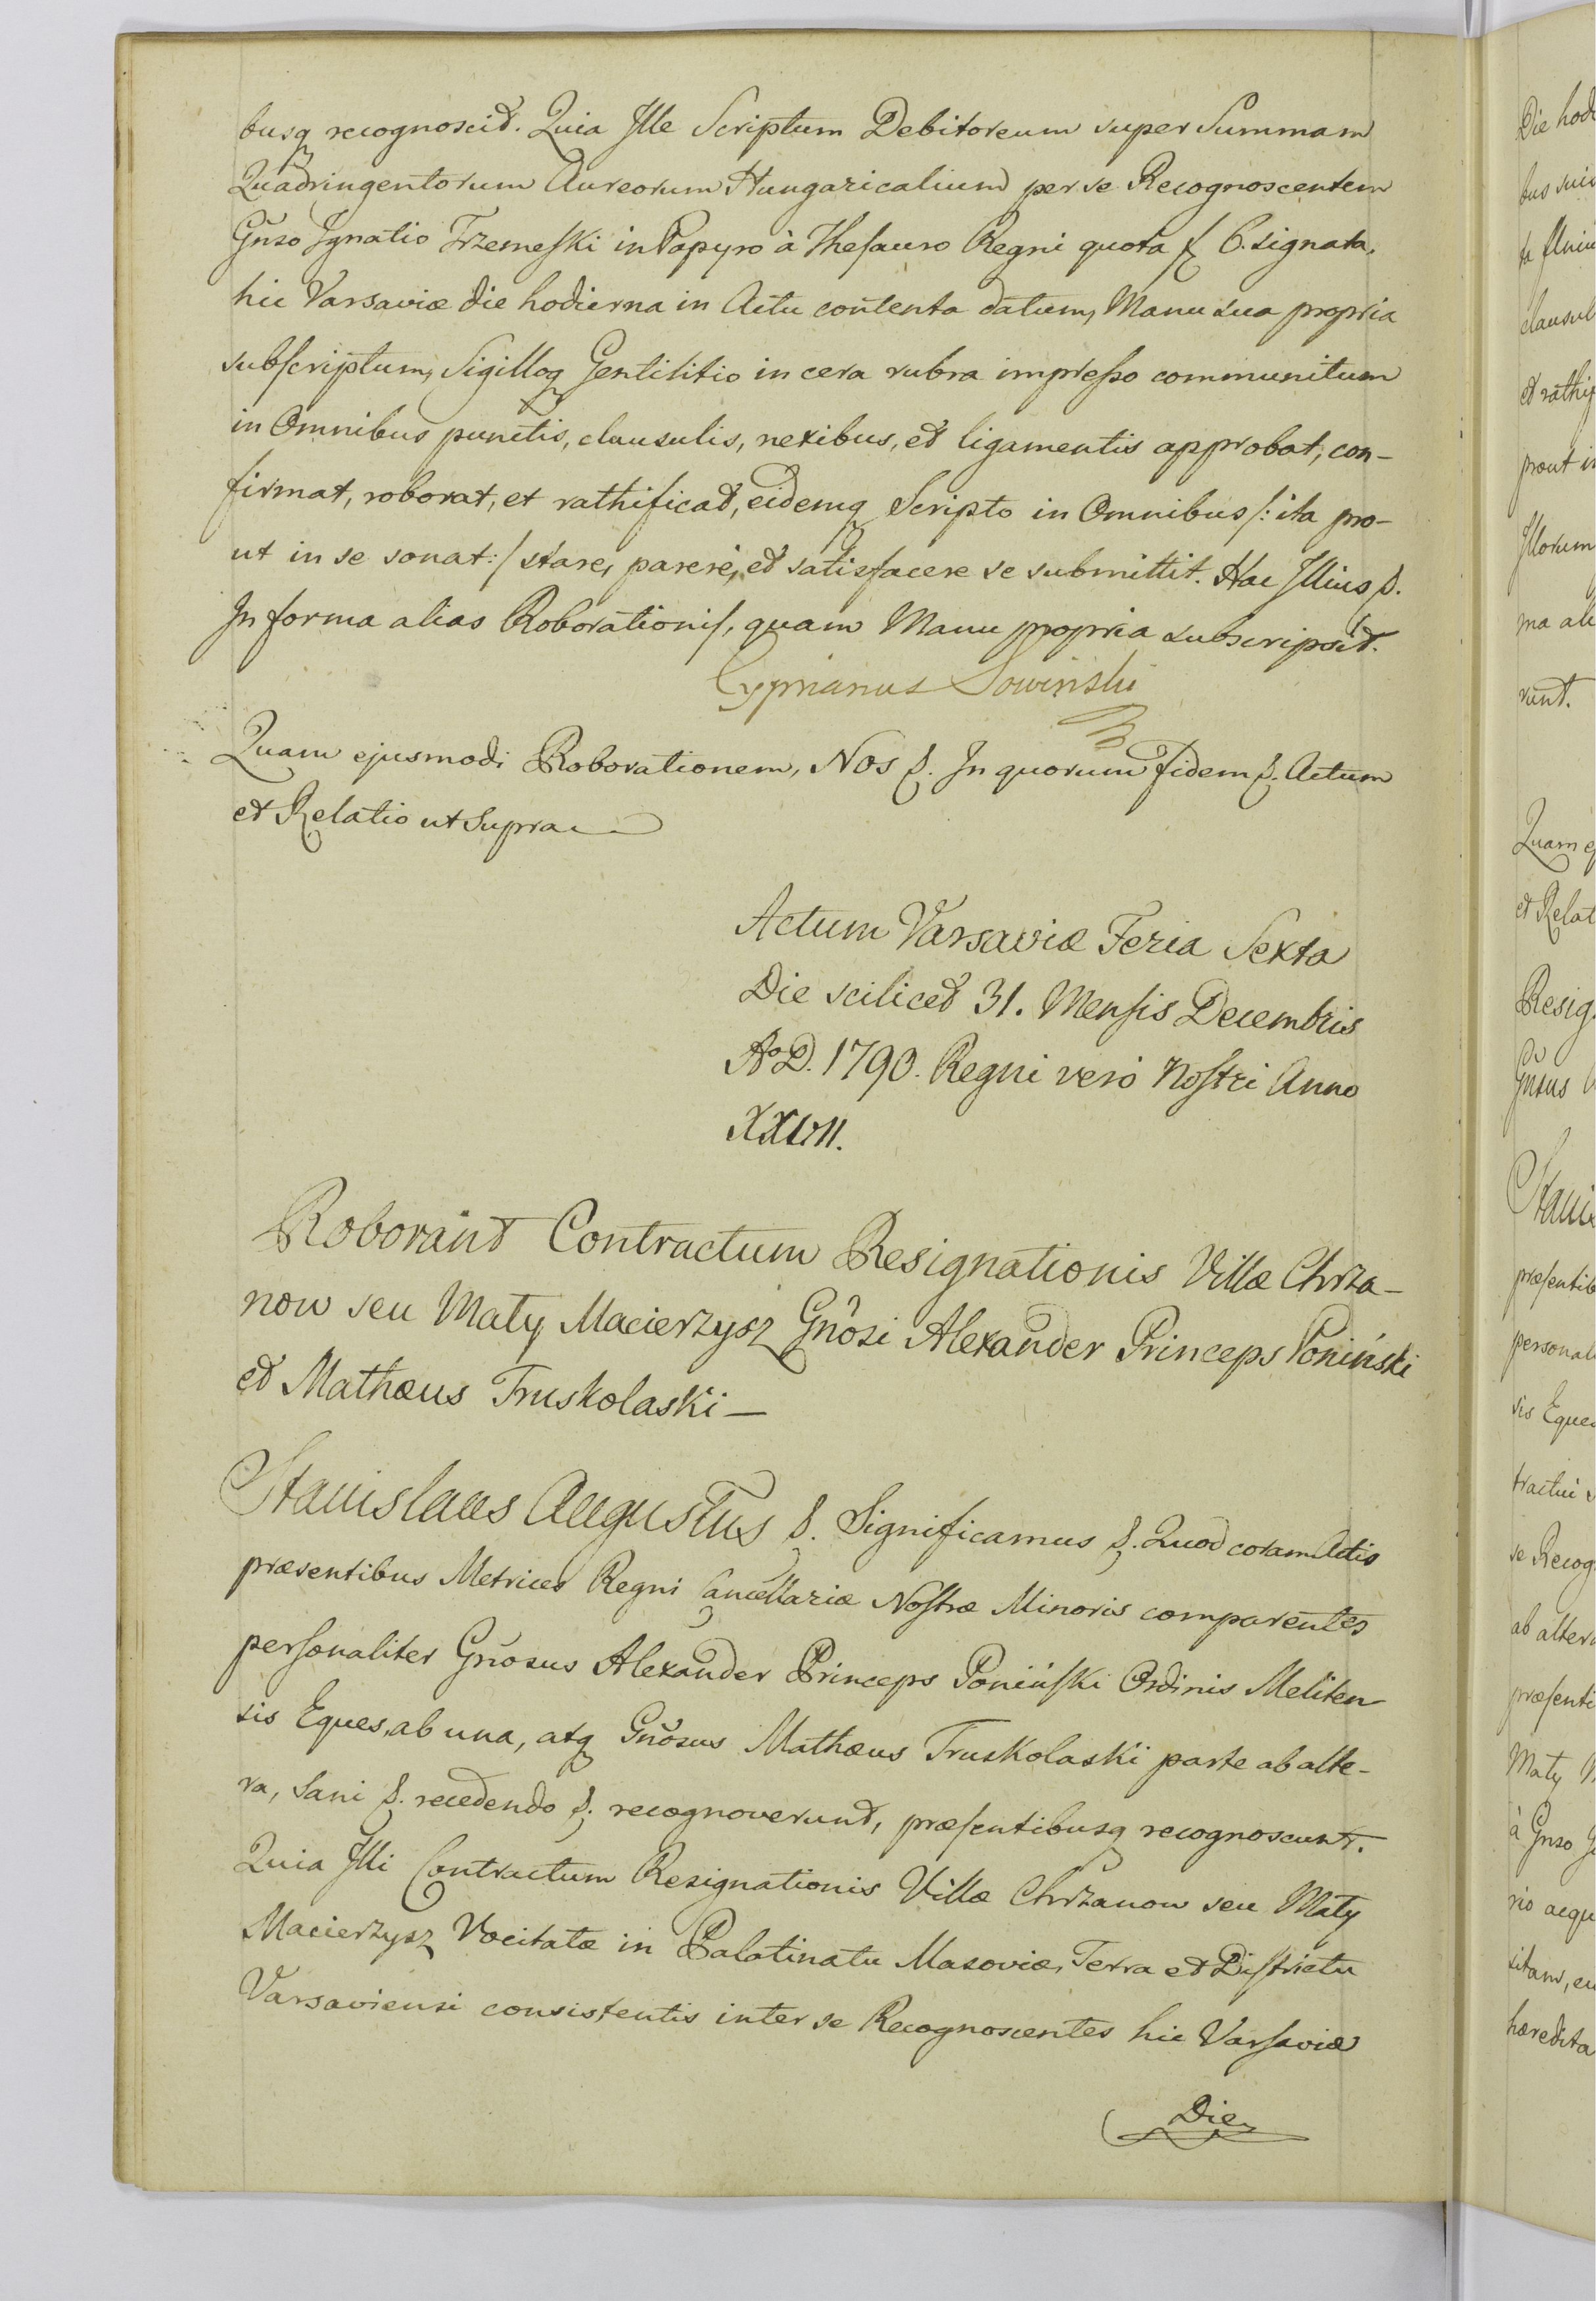 busq recognoscit. Quia Ille Scriptum Debitoreum super Summam
Quadringentorum Aureorum Hungaricalium per se Recognoscentem
Gñso Ignatio Trzemeski in Papyro à Thesauro Regni quota f 6. signata,
hic Varsaviæ die hodierna in Actu contenta datum, Manu sua propria
subscriptum, Sigilloq Gentilitio in cera rubra impresso communitum
in Omnibus punctis, clausulis, nexibus, et ligamentis approbat, con-
firmat, roborat, et rathificat, eidemq Scripto in Omnibus /: ita pro-
ut in se sonat :/ stare, parere, et satisfacere se submittit. Hac Illius &.
In forma alias Roborationis, quam Manu propria subscripsit.
Cyprianus Sowinski
Quam ejusmodi Roborationem, Nos &. In quorum Fidem &. Actum
et Relatio ut Supra
Actum Varsaviæ Feria Sexta
Die scilicet 31. Mensis Decembris
Ao D. 1790. Regni verò Nostri Anno
XXVII.
Roborant Contractum Resignationis Villæ Chrza-
now seu Maty Macierzysz Gñosi Alexander Princeps Poniński
et Mathæus Truskolaski —
Stanislaus Augustus &. Significamus &. Quod coram Actis
præsentibus Metrices Regni Cancellariæ Nostræ Minoris comparentes
personaliter Gñosus Alexander Princeps Poniński Ordinis Meliten
sis Eques, ab una, atq Gñosus Mathæus Truskolaski parte ab alte-
ra, Sani &. recedendo &. recognoverunt, præsentibusq recognoscunt.
Quia Illi Contractum Resignationis Villæ Chrzanow seu Maty
Macierzysz Vocitatæ in Palatinatu Masoviæ, Terra et Districtu
Varsaviensi consistentis inter se Recognoscentes hic Varsaviæ
Die
Die hod
bus
clausul
et rathif
prout in
Illorum
ma ali
runt.
Quam ej
et Relat
Resig
Gñsus
Stanis
præsentib
personali
sis Eques
tractui
se Recog
ab altera
præsenti
Maty
à Gnso
rio acqu
sitam, cu
hæredita